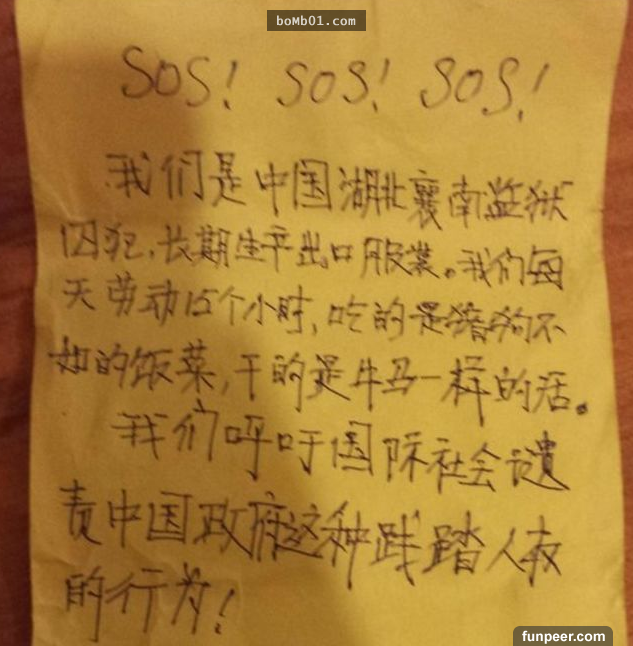 boMb01.com
SOS! SOS! SOS!
我们是中国湖北襄南监狱
囚犯,长期生产出口服装。我们每
天劳动15个小时,吃的是猪狗不
如的饭菜,干的是牛马一样的活。
我们呼吁国际社会谴
责中国政府这种践踏人权
的行为!
funpeer.com